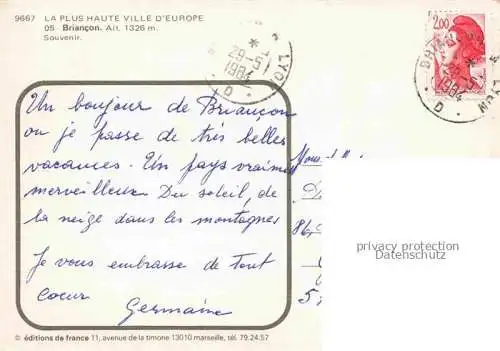 9667 LA PLUS HAUTE VILLE D'EUROPE
05 Briançon. Alt. 1326 m.
Souvenir.
2,00
LYON
29-5
1984
Un boujour de Briançon
ou je passe de très belles
vacances. Un pays vraimen
merveilleux Du soleil, de
la neige dans les montagnes
Je vous embrasse de tout
coeur
Germaine
86,
5
privacy protection
Datenschutz
© éditions de france 11, avenue de la timone 13010 marseille, tél. 79.24.57